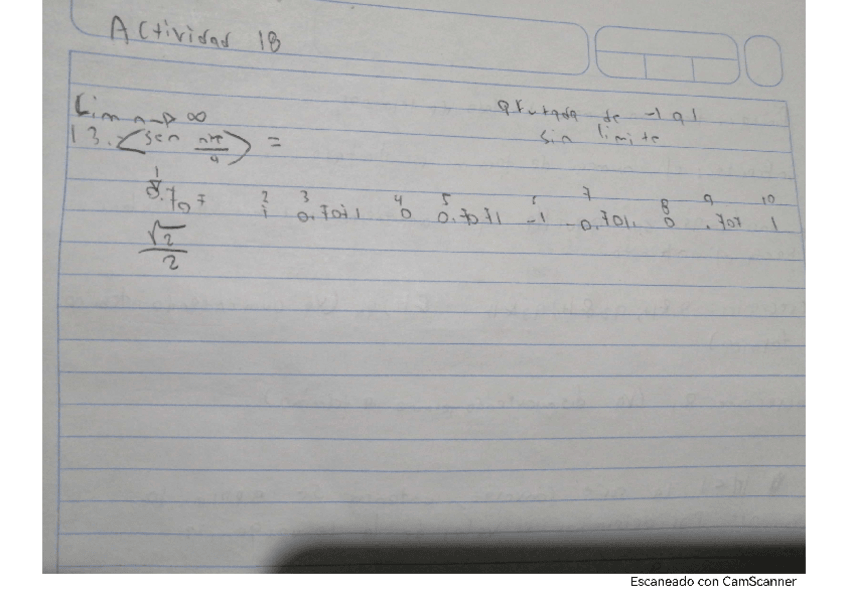 Actividad 18
Lim n→∞
acotada de -1 a 1
sin limite
13. <sen nπ/4> =
1 2 3 4 5 6 7 8 9 10
0.707 1 0.7071 0 0.7071 -1 -0.7071 0 .707 1
√2/2
Escaneado con CamScanner